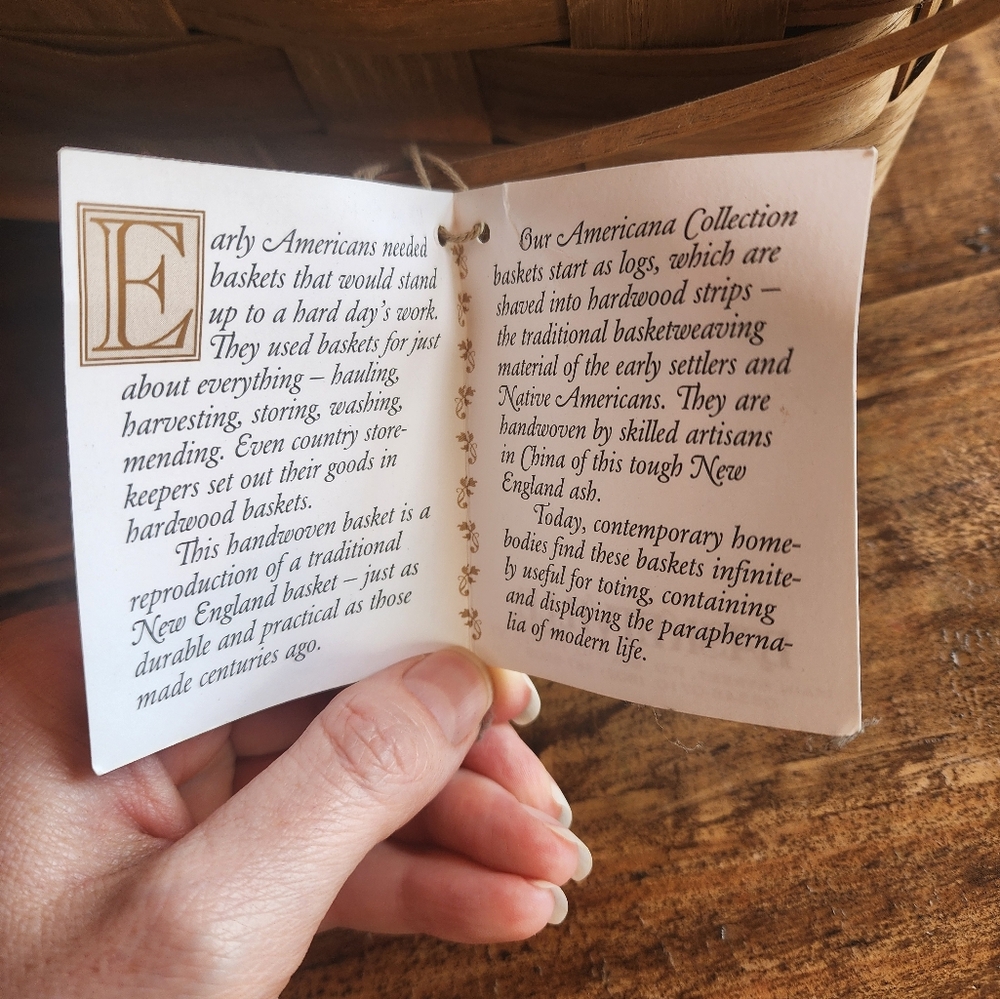 Early Americans needed
baskets that would stand
up to a hard day's work.
They used baskets for just
about everything – hauling,
harvesting, storing, washing,
mending. Even country store-
keepers set out their goods in
hardwood baskets.
This handwoven basket is a
reproduction of a traditional
New England basket – just as
durable and practical as those
made centuries ago.
Our Americana Collection
baskets start as logs, which are
shaved into hardwood strips –
the traditional basketweaving
material of the early settlers and
Native Americans. They are
handwoven by skilled artisans
in China of this tough New
England ash.
Today, contemporary home-
bodies find these baskets infinite-
ly useful for toting, containing
and displaying the parapherna-
lia of modern life.